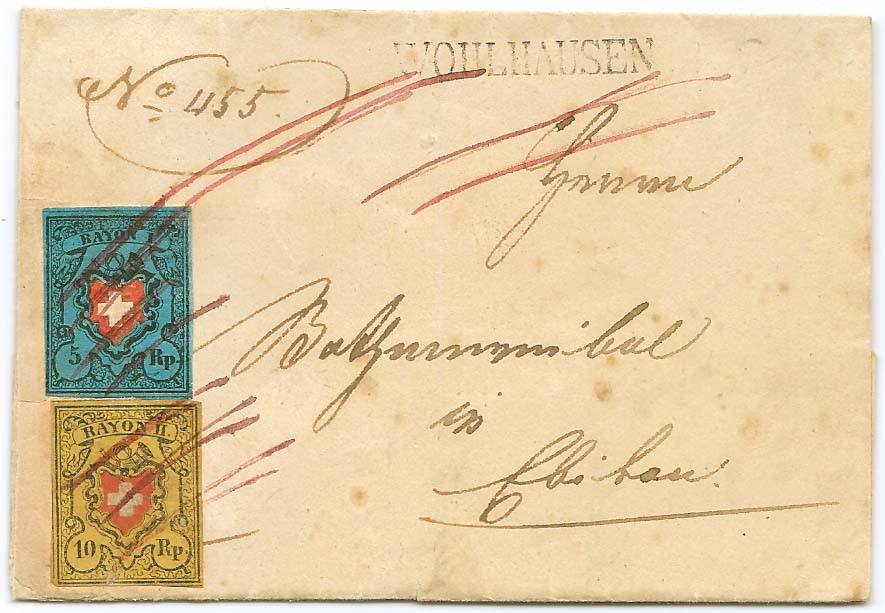 WOHLHAUSEN
No 455.
RAYON I.
5 Rp.
RAYON II.
10 Rp.
Herrn
in